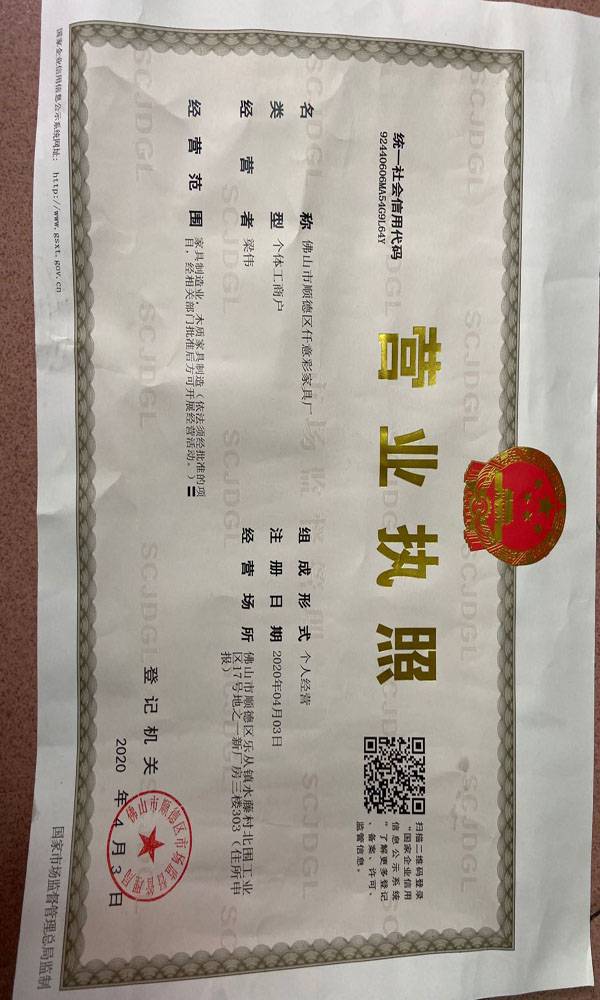 营业执照
统一社会信用代码
92440606MA54G9L64Y
扫描二维码登录
“国家企业信用
信息公示系统
”了解更多登记
、备案、许可、
监管信息。
名称 佛山市顺德区仟意彩家具厂
类型 个体工商户
经营者 梁伟
经营范围 家具制造业；木质家具制造（依法须经批准的项
目，经相关部门批准后方可开展经营活动。）
组成形式 个人经营
注册日期 2020年04月03日
经营场所 佛山市顺德区乐从镇水藤村北围工业
区17号地之一新厂房三楼303（住所申
报）
登记机关
2020 年 4 月 3 日
佛山市顺德区市场监督管理局
国家企业信用信息公示系统网址： http://www.gsxt.gov.cn
国家市场监督管理总局监制
SCJDGL